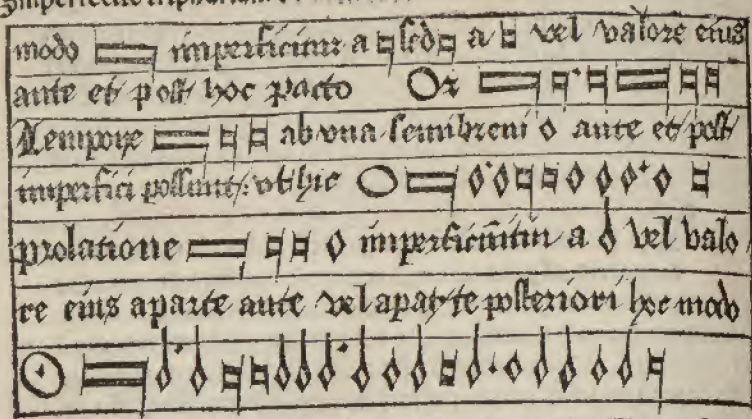 Imperfectio
modo imperficitur a sed a vel valore eius
ante et post hoc pacto O2
Tempore ab vna semibreui ante et post
imperfici possunt: vt hic
prolatione imperficiuntur a vel valo
re eius aparte ante vel aparte posteriori hoc modo